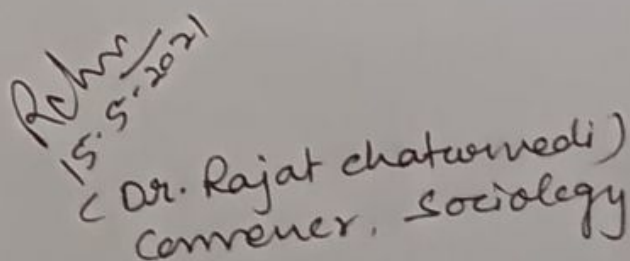 15.5.2021
(Dr. Rajat chaturvedi)
Convener, Sociology